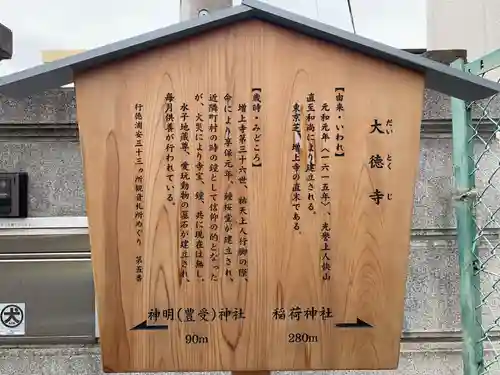 大徳寺
だい とく じ
【由来・いわれ】
元和元年（一六一五年）、光誉上人快山
直至和尚により建立される。
東京芝・増上寺の直末である。
【歳時・みどころ】
増上寺第三十六世、祐天上人行脚の際、
命により享保元年、鐘楼堂が建立され、
近隣町村の時の鐘として信仰の的となった
が、火災により寺宝、鐘、共に現在は無し。
水子地蔵尊、愛玩動物の墓石が建立され、
毎月供養が行われている。
行徳浦安三十三ヵ所観音札所めぐり 第五番
神明(豊受)神社
90m
稲荷神社
280m
犬